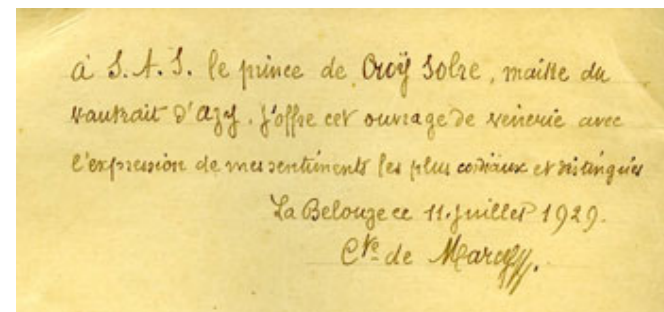 à S.A.S. le prince de Croÿ Solre, maître du
vautrait d'Azy. J'offre cet ouvrage de vènerie avec
l'expression de mes sentiments les plus cordiaux et distingués
La Belouze ce 11. juillet 1929.
Cte de